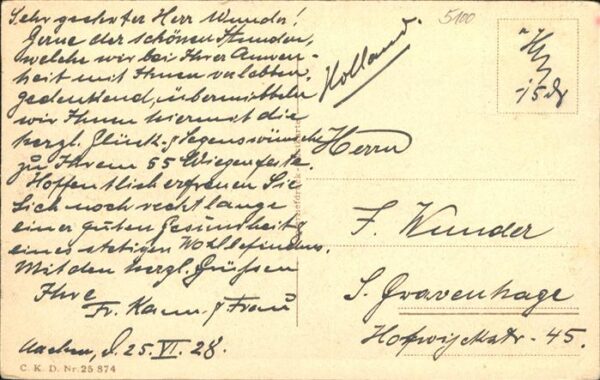 Sehr geehrter Herr Wunder!
Gerne der schönen Stunden,
welche wir bei Ihrer Anwen-
heit mit Ihnen verlebten,
gedenkend, übermitteln
wir Ihnen hiermit die
herzl. Glück- & Segenswünsche
zu Ihrem 55 Wiegenfeste.
Hoffentlich erfreuen Sie
Sich noch recht lange
einer guten Gesundheit &
eines stetigen Wohlbefindens.
Mit den herzl. Grüßen
Ihre
Fr. Kann. & Frau
Aachen, d. 25. VI. 28.
C. K. D. Nr. 25 874
5100
Holland.
Herrn
F. Wunder
S. Gravenhage
Hofwijckstr. 45.